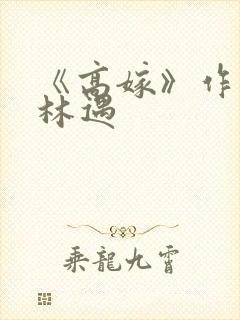 《高嫁》作
林遇
乘龍九霄